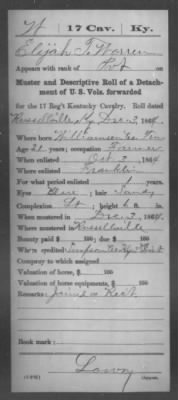 W 17 Cav. Ky.
Elijah T. Warren
Appears with rank of Pvt on
Muster and Descriptive Roll of a Detach-
ment of U. S. Vols. forwarded
for the 17 Reg't Kentucky Cavalry. Roll dated
Russellville Ky Dec 3, 1864.
Where born Williamson Co Ten
Age 21 years; occupation Farmer
When enlisted Oct 3, 1864.
Where enlisted Franklin
For what period enlisted years.
Eyes Blue; hair Sandy
Complexion Lt; height 6 ft. in.
When mustered in Dec 3, 1864.
Where mustered in Russellville
Bounty paid $ 100; due $ 100
Where credited Simpson Co Ky Dist
Company to which assigned
Valuation of horse, $ 100
Valuation of horse equipments, $ 100
Remarks: Joined as Rec't
Book mark:
Copyist.